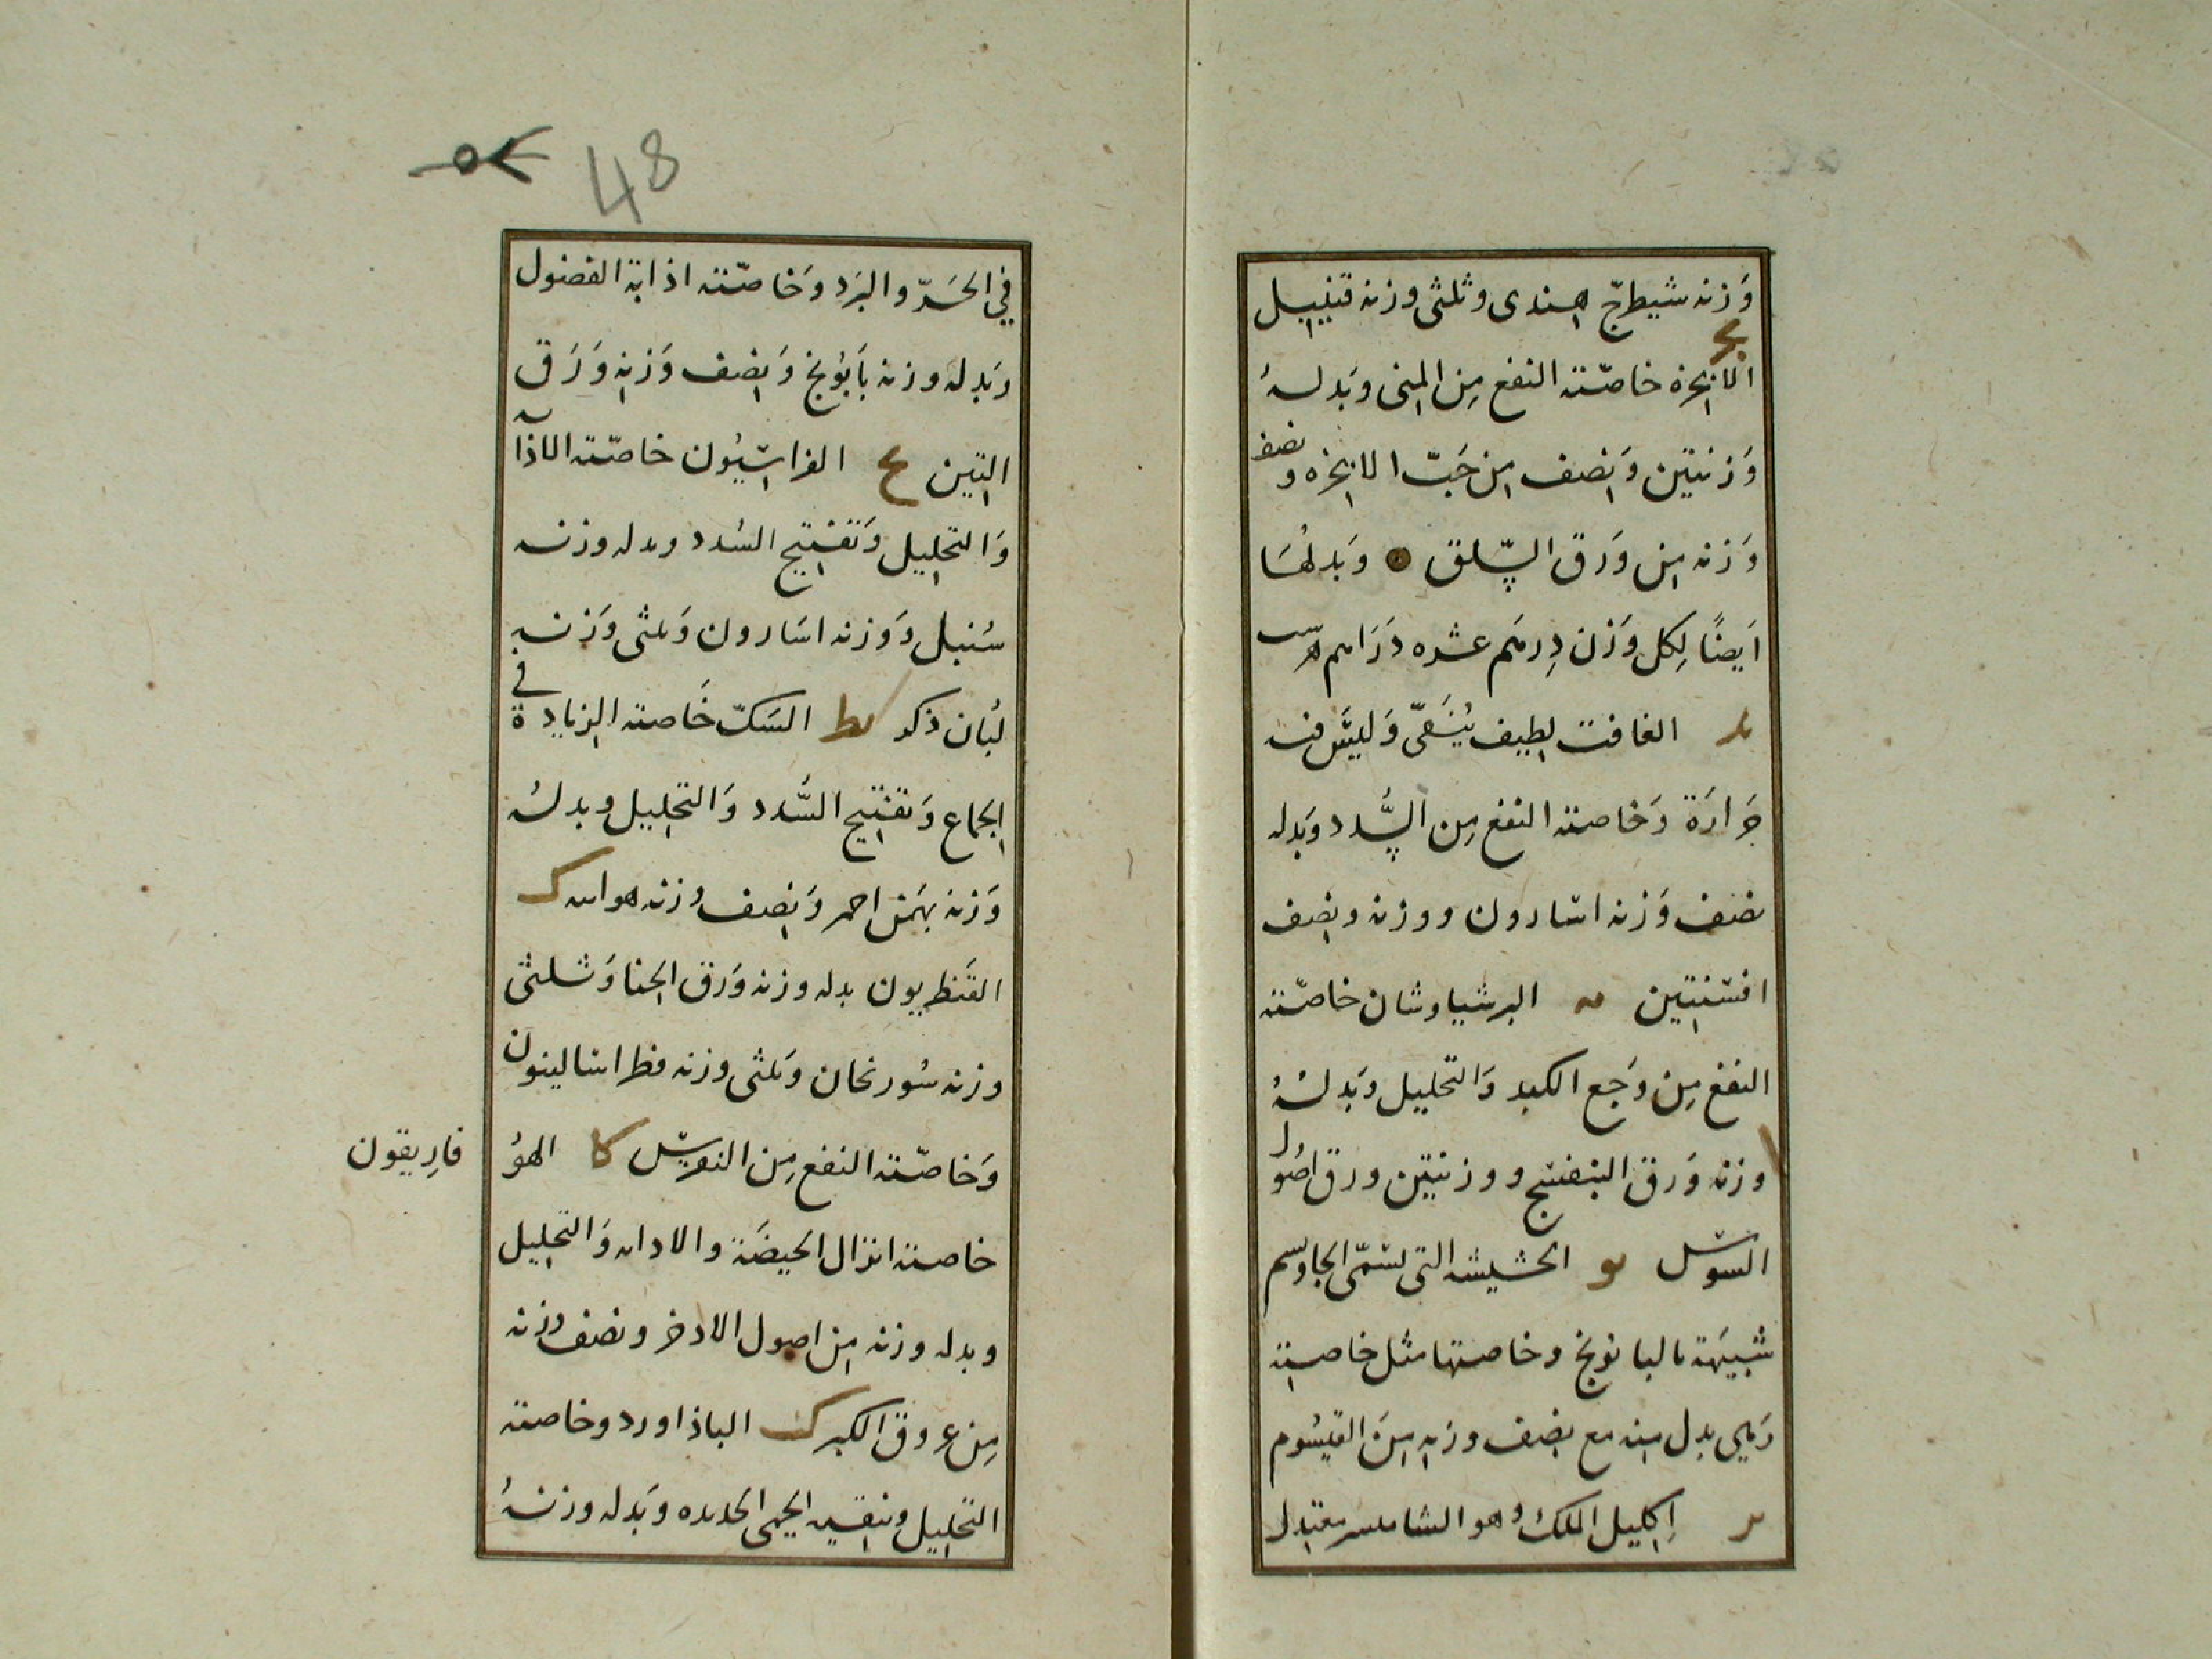 وَزنه شيطرجّ هندى وثلثى وزنه قنيبيل
يج
الانجره خاصّته النفع مِن المِنى وبَدلهُ
وَزنيتين وَنصف مِن حَبّ الانجره ونصف
وَزنه مِن وَرق السِّلق وَبَدلهُا
اَيضًا لِكل وَزن دِرهَم عشره دَرَاهم
يد الغافت لطيف يُنَقىّ وَليسَ فيه
حَرارَة وَخاصته النفع مِن السُّدد وبَدله
نصف وَزنه اسارون ووزنه ونصف
افسَنتين يه البرشياوشان خاصّته
النفع مِن وَجع الكبد وَالتحليل وبَدلهُ
وزنه وَرق البنفسج ووزنيتين ورق اصُول
السوس يو الحشيشه التى تسَمّى الجاوسم
شبيهَة بالبابونج وخاصتها مثل خاصيته
وَهي بدل منه مع نصف وزنه مِنَ القيسُوم
يز اِكليل الملك وهو معتدل
48
في الحَرّ والبَردِ وَخاصّته اذابة الفضول
وبَدله وزنه بَابُونج وَنصف وَزنه وَرَق
التين يح الفراسيُون خاصّته الاذابه
وَالتحليل وَتفتيح السُدد وبدله وزنه
سُنبل وَوزنه اسَارون وَثلثى وَزنه
لبُان ذكر يط السَكّ خَاصته الزيادة في
الجماع وَتفتيح السُّدد وَالتحليل وبدلهُ
وَزنه بهَمَن احمر وَنصف وزنه ك
القَنطريون بدله وزنه وَرق الحنا وَثلثى
وزنه سُورنجان وَثلثى وزنه فطراسالينون
وَخاصّته النفع مِن النقرس كا الهوُ
فاريقون
خاصته انزال الحيضَة والادابه وَالتحليل
وبدله وزنه مِن اصول الاذخر ونصف وزنه
مِن عروق الكبر كب الباذاورد وخاصته
التحليل وتنقيه الحمى وبَدله وزنهُ